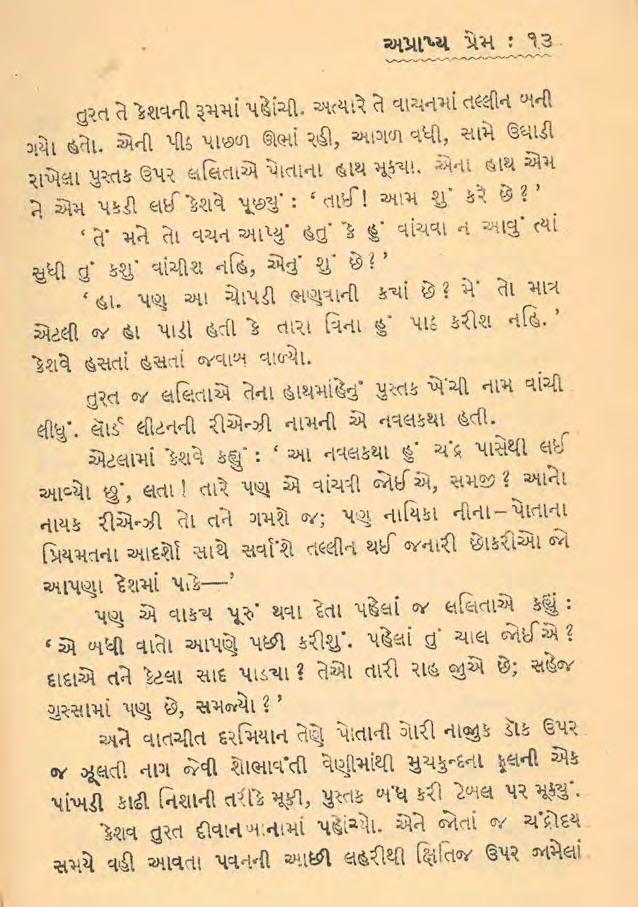 અપ્રાપ્ય પ્રેમ : ૧૩
તુરત તે કેશવની રૂમમાં પહેાંચી. અત્યારે તે વાચનમાં તલ્લીન બની
ગયેા હતેા. એની પીઠ પાછળ ઊભાં રહી, આગળ વધી, સામે ઉઘાડી
રાખેલા પુસ્તક ઉપર લલિતાએ પેાતાના હાથ મૂક્યા. એના હાથ એમ
ને એમ પકડી લઈ કેશવે પૂછ્યું : ‘ તાઈ ! આમ શું કરે છે ? ’
‘ તેં મને તેા વચન આપ્યું હતું કે હું વાંચવા ન આવું ત્યાં
સુધી તું કશું વાંચીશ નહિ, એનું શું છે ? ’
‘ હા. પણ આ ચેાપડી ભણવાની કયાં છે ? મેં તેા માત્ર
એટલી જ હા પાડી હતી કે તારા વિના હું પાઠ કરીશ નહિ. ’
કેશવે હસતાં હસતાં જવાબ વાળ્યેા.
તુરત જ લલિતાએ તેના હાથમાંહેનું પુસ્તક ખેંચી નામ વાંચી
લીધું. લૉર્ડ લીટનની રીએન્ઝી નામની એ નવલકથા હતી.
એટલામાં કેશવે કહ્યું : ‘ આ નવલકથા હું ચંદ્ર પાસેથી લઈ
આવ્યેા છું, લતા ! તારે પણ એ વાંચવી જોઈએ, સમજી ? આનેા
નાયક રીએન્ઝી તેા તને ગમશે જ; પણ નાયિકા નીના – પેાતાના
પ્રિયમતના આદર્શો સાથે સર્વાંશે તલ્લીન થઈ જનારી છેાકરીએા જો
આપણા દેશમાં પાકે—’
પણ એ વાકય પૂરું થવા દેતા પહેલાં જ લલિતાએ કહ્યું :
‘ એ બધી વાતેા આપણે પછી કરીશું. પહેલાં તું ચાલ જોઈએ ?
દાદાએ તને કેટલા સાદ પાડયા ? તેએા તારી રાહ જુએ છે; સહેજ
ગુસ્સામાં પણ છે, સમજ્યેા ? ’
અને વાતચીત દરમિયાન તેણે પેાતાની ગેારી નાજુક ડૉક ઉપર
જ ઝૂલતી નાગ જેવી શેાભાવંતી વેણીમાંથી મુચકુન્દના ફૂલની એક
પાંખડી કાઢી નિશાની તરીકે મૂકી, પુસ્તક બંધ કરી ટેબલ પર મૂક્યું.
કેશવ તુરત દીવાનખાનામાં પહેાંચ્યેા. એને જોતાં જ ચંદ્રોદય
સમયે વહી આવતા પવનની આછી લહરીથી ક્ષિતિજ ઉપર જામેલાં